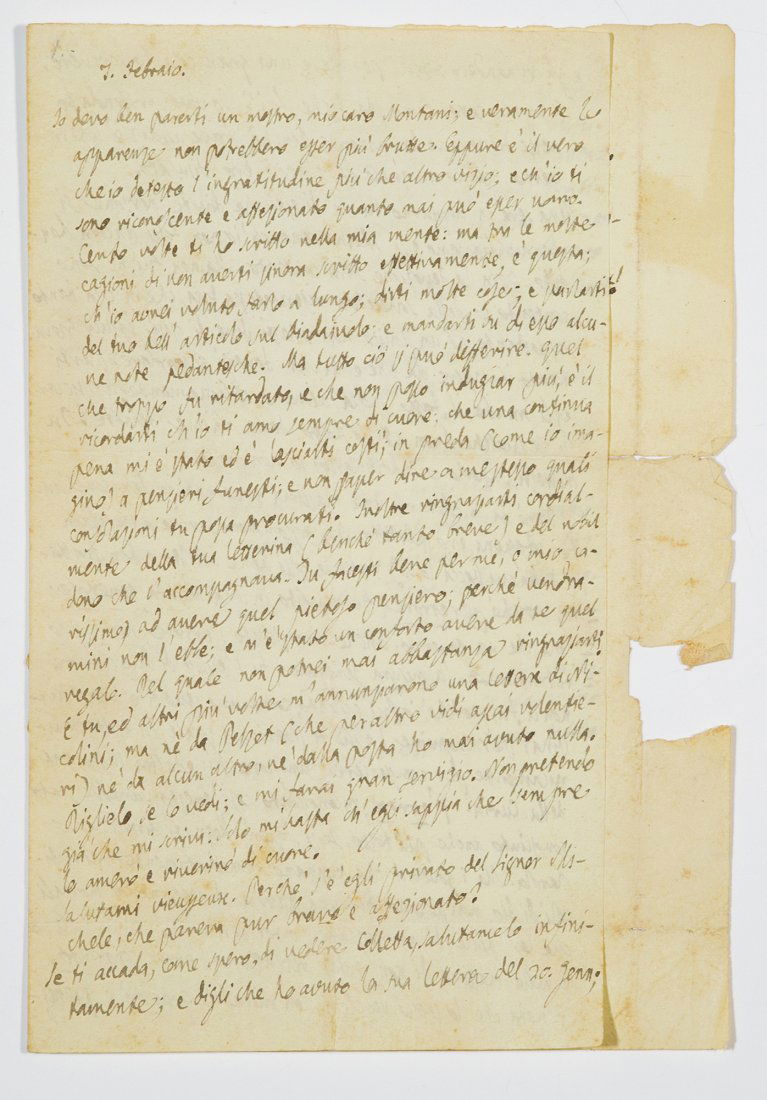 7. Febraio.
Io devo ben parerti un mostro, mio caro Montani; e veramente le
apparenze non potrebbero esser più brutte. Eppure è il vero
che io detesto l'ingratitudine più che altro vizio; e ch'io ti
sono riconoscente e affezionato quanto mai può esser uomo.
Cento volte ti ho scritto nella mia mente: ma tra le molte
cagioni di non averti sinora scritto effettivamente, è questa;
ch'io avrei voluto farlo a lungo; dirti molte cose; e parlarti
del tuo bell'articolo sul; e mandarti su di esso alcu-
ne note pedantesche. Ma tutto ciò si può differire. Quel
che troppo fu ritardato, e che non posso indugiar più, è il
ricordarti ch'io ti amo sempre di cuore; che una continua
pena mi è stato ed è lasciarti costì, in preda (come io ima-
gino) a pensieri funesti; e non saper dire a me stesso quali
consolazioni tu possa procurarti. Inoltre ringraziarti cordial-
mente della tua letterina (benchè tanto breve) e del nobil
dono che l'accompagnava. Tu facesti bene per me, o mio ca-
rissimo, ad avere quel pietoso pensiero; perchè Vendra-
mini non l'ebbe; e m'è stato un conforto avere da te quel
regalo. Del quale non potrei mai abbastanza ringraziarti.
E tu, ed altri più volte m'annunziarono una lettera di Ni-
colini; ma nè da Pezzet (che per altro vidi assai volentie-
ri) nè da alcun altro, nè dalla posta ho mai avuto nulla.
Diglielo, se lo vedi; e mi farai gran servigio. Non pretendo
già che mi scriva: solo mi basta ch'egli sappia che sempre
lo amerò e riverirò di cuore.
Salutami Vieusseux. Perchè s'è egli privato del signor Mi-
chele, che pareva pur bravo e affezionato?
Se ti accada, come spero, di vedere Colletta, salutamelo infini-
tamente; e digli che ho avuto la sua lettera del 20. Genn;